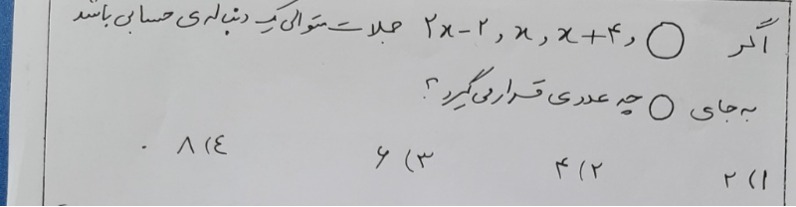 اگر ◯ , ۲x-۲ , x , x+۴ جملات متوالی یک دنباله ی حسابی باشد
به جای ◯ چه عددی قرار می گیرد؟
۱) ۲ ۲) ۴ ۳) ۶ ۴) ۸